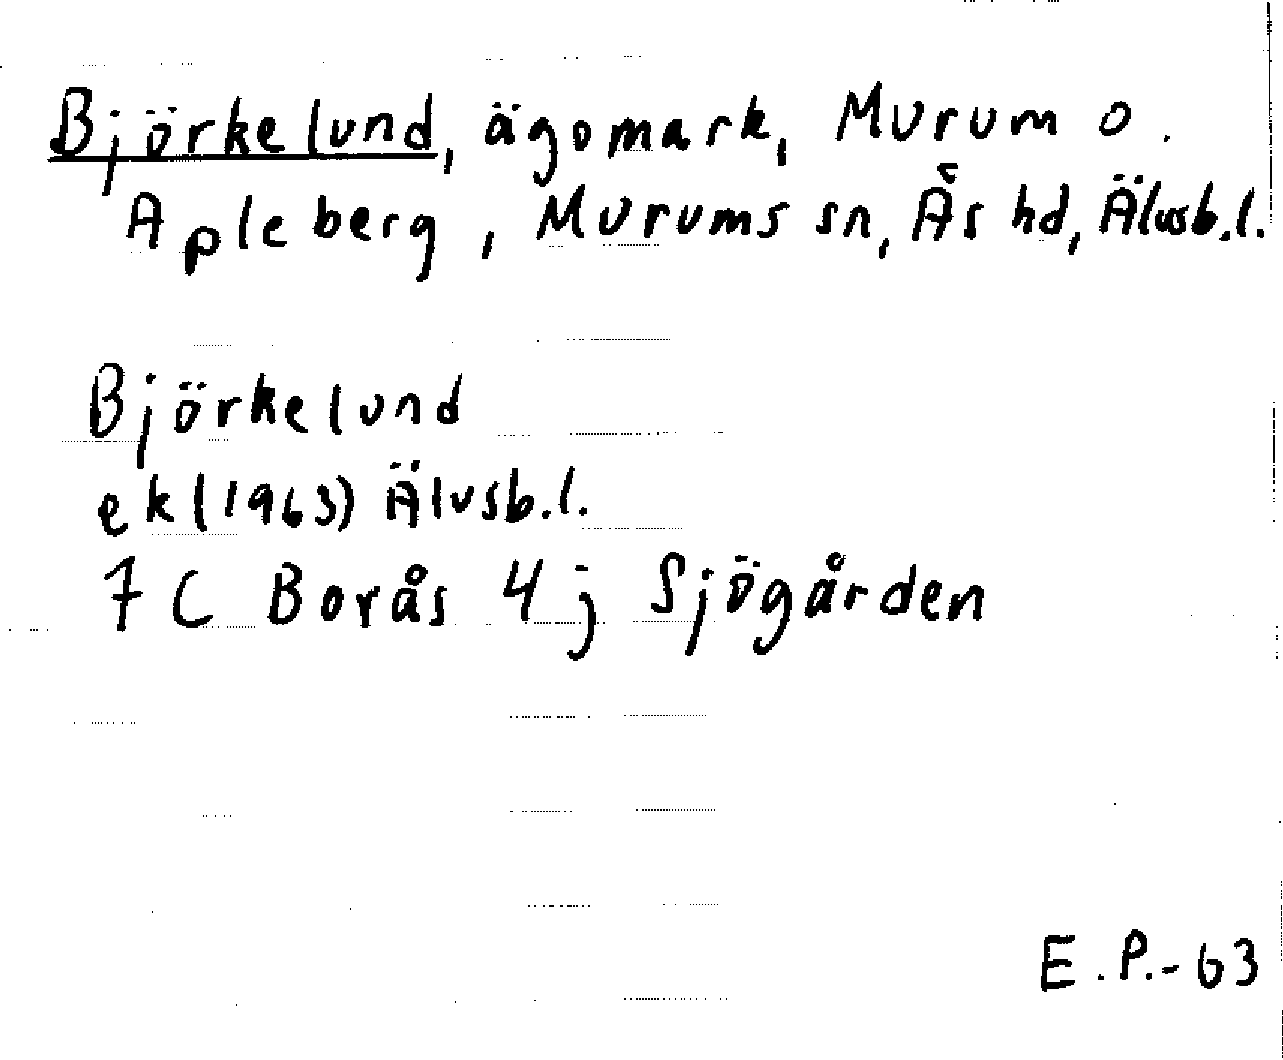 Björkelund, ägomark, Murum o.
Apleberg, Murums sn, Ås hd, Älvsb.l.
Björkelund
ek (1963) Älvsb.l.
7 C Borås 4 j Sjögården
E.P.-63